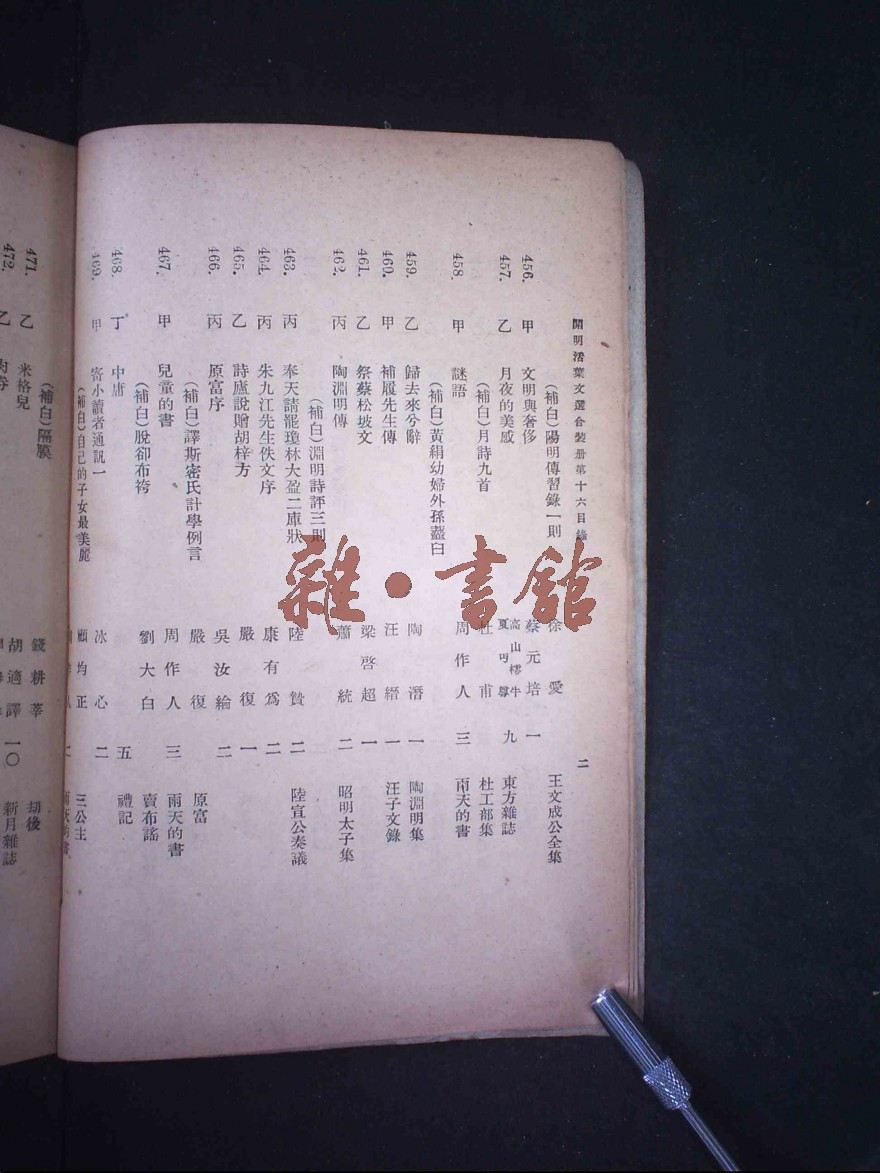 開明活葉文選合裝册第十六目錄 二
(補白)陽明傳習錄一則 徐愛 王文成公全集
456. 甲 文明與奢侈 蔡元培 一
457. 乙 月夜的美感 高山樗牛 夏丏尊 九 東方雜誌
(補白)月詩九首 杜甫 杜工部集
458. 甲 謎語 周作人 三 雨天的書
(補白)黃絹幼婦外孫虀臼
459. 乙 歸去來兮辭 陶潛 一 陶淵明集
460. 甲 補履先生傳 汪縉 一 汪子文錄
461. 乙 祭蔡松坡文 梁啓超 一
462. 丙 陶淵明傳 蕭統 二 昭明太子集
(補白)淵明詩評三則
463. 丙 奉天請罷瓊林大盈二庫狀 陸贄 二 陸宣公奏議
464. 丙 朱九江先生佚文序 康有爲 二
465. 乙 詩廬說贈胡梓方 嚴復 一
466. 丙 原富序 吳汝綸 二
(補白)譯斯密氏計學例言 嚴復 原富
467. 甲 兒童的書 周作人 三 雨天的書
(補白)脫卻布袴 劉大白 賣布謠
468. 丁 中庸 五 禮記
469. 甲 寄小讀者通訊一 冰心 二
(補白)自己的子女最美麗 顧均正 三公主
二 雨天的書
(補白)隔膜
471. 乙 米格兒 錢耕莘 劫後
472. 乙 胡適譯 一〇 新月雜誌
雜·書館